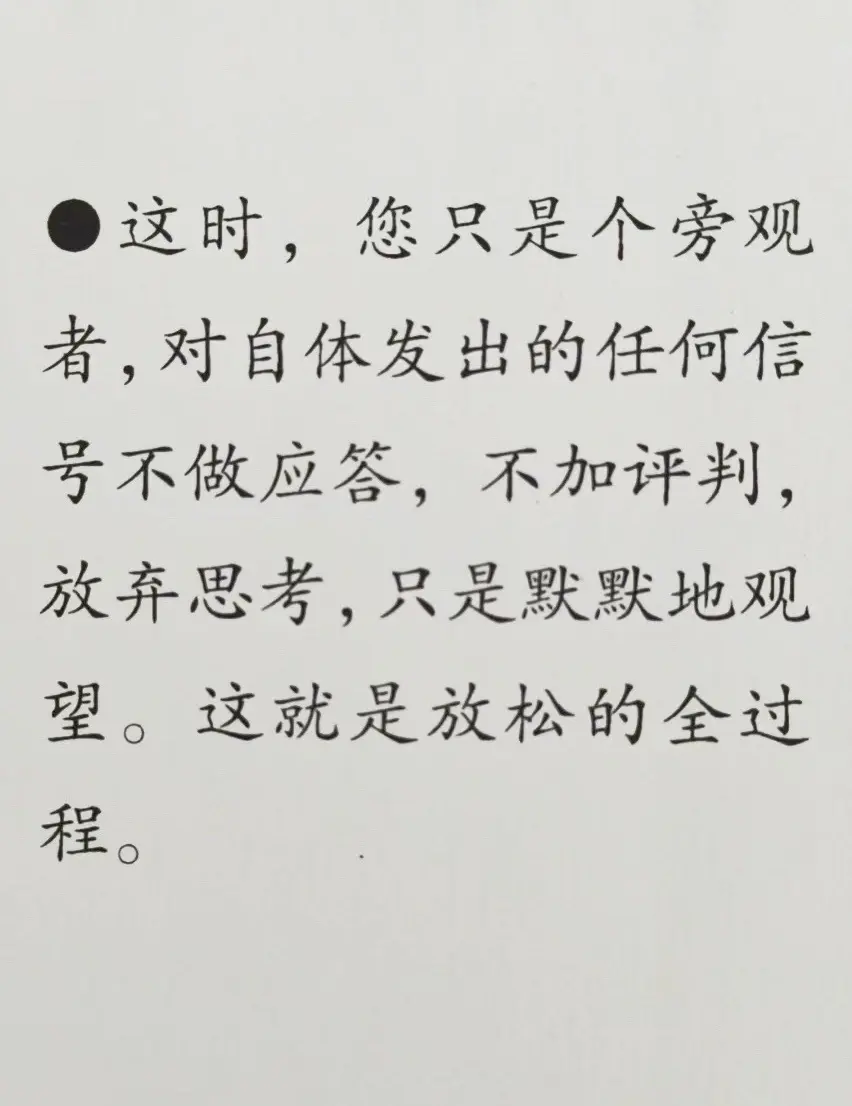 ●这时，您只是个旁观
者，对自体发出的任何信
号不做应答，不加评判，
放弃思考，只是默默地观
望。这就是放松的全过
程。